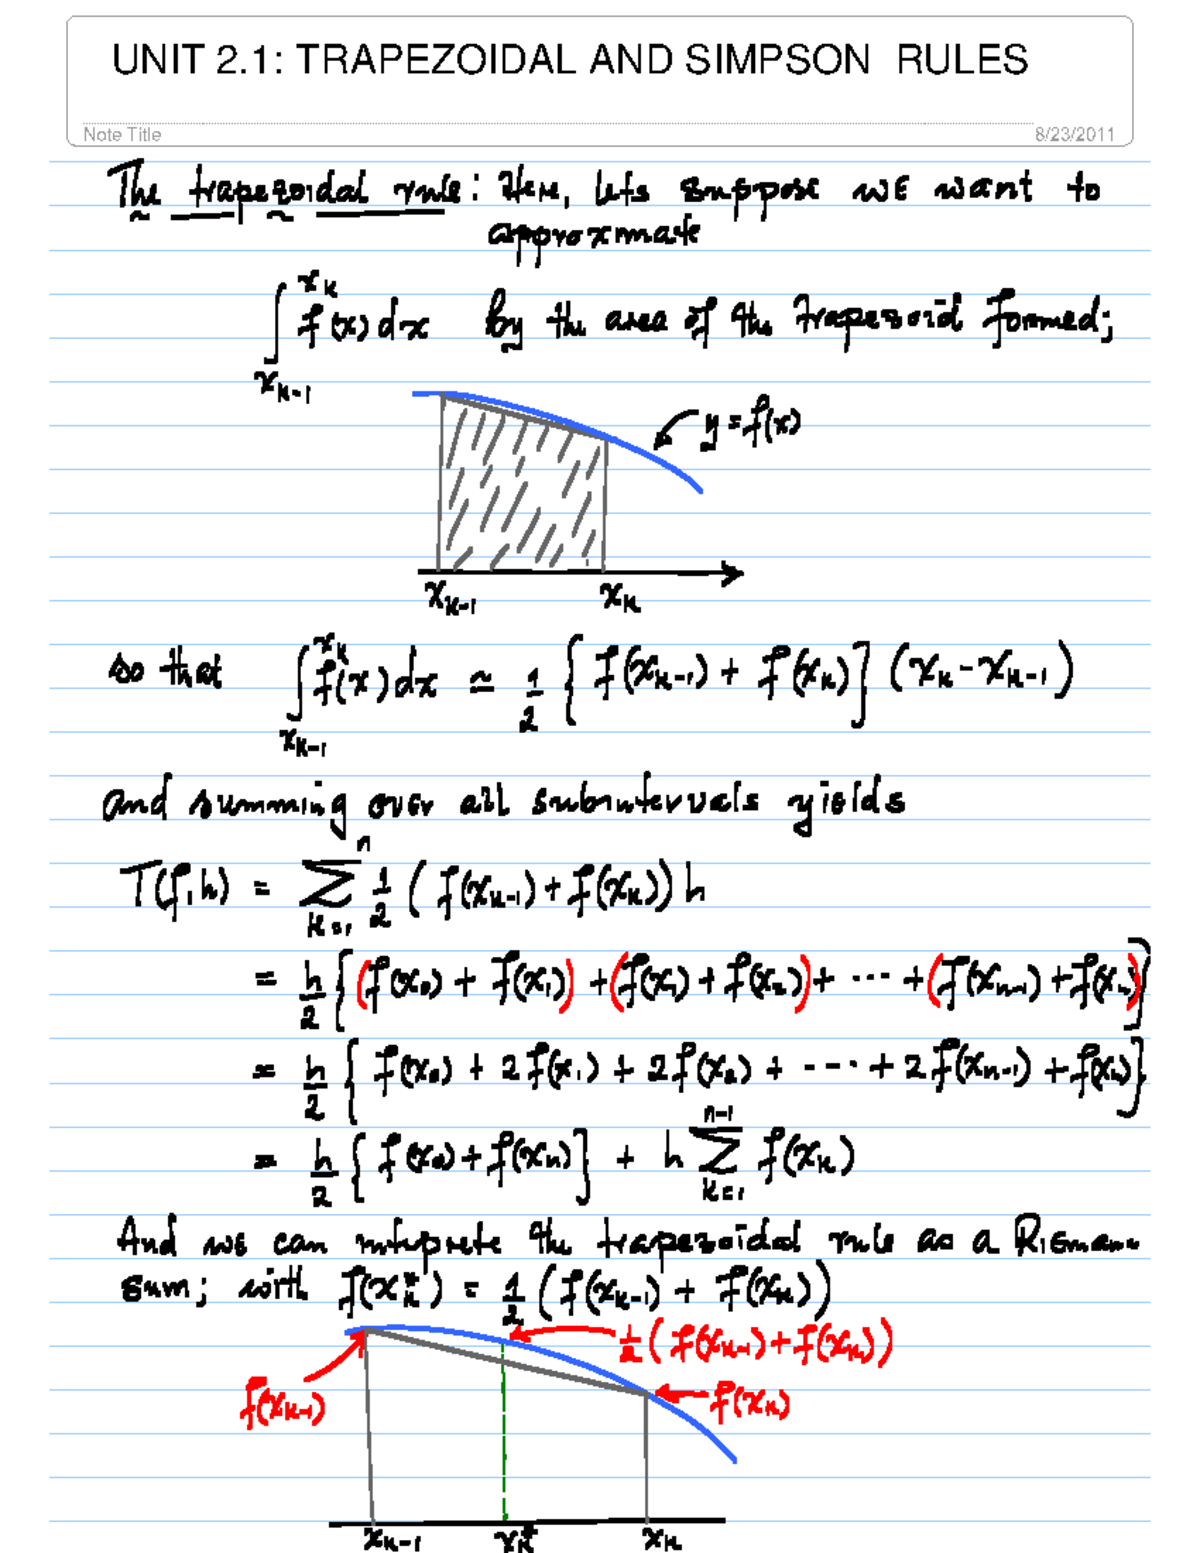 UNIT 2.1: TRAPEZOIDAL AND SIMPSON RULES
Note Title
8/23/2011
The trapezoidal rule: Here, lets suppose we want to
approximate
∫_{x_{k-1}}^{x_k} f(x) dx by the area of the trapezoid formed;
y = f(x)
x_{k-1} x_k
so that ∫_{x_{k-1}}^{x_k} f(x) dx ≃ 1/2 { f(x_{k-1}) + f(x_k) } (x_k - x_{k-1})
and summing over all subintervals yields
T(f,h) = ∑_{k=1}^{n} 1/2 ( f(x_{k-1}) + f(x_k) ) h
= h/2 { (f(x_0) + f(x_1)) + (f(x_1) + f(x_2)) + ··· + (f(x_{n-1}) + f(x_n)) }
= h/2 { f(x_0) + 2f(x_1) + 2f(x_2) + ···· + 2f(x_{n-1}) + f(x_n) }
= h/2 { f(x_0) + f(x_n) } + h ∑_{k=1}^{n-1} f(x_k)
And we can interprete the trapezoidal rule as a Riemann
sum; with f(x_k^*) = 1/2 ( f(x_{k-1}) + f(x_k) )
1/2 ( f(x_{k-1}) + f(x_k) )
f(x_{k-1})
f(x_k)
x_{k-1} x_k^* x_k